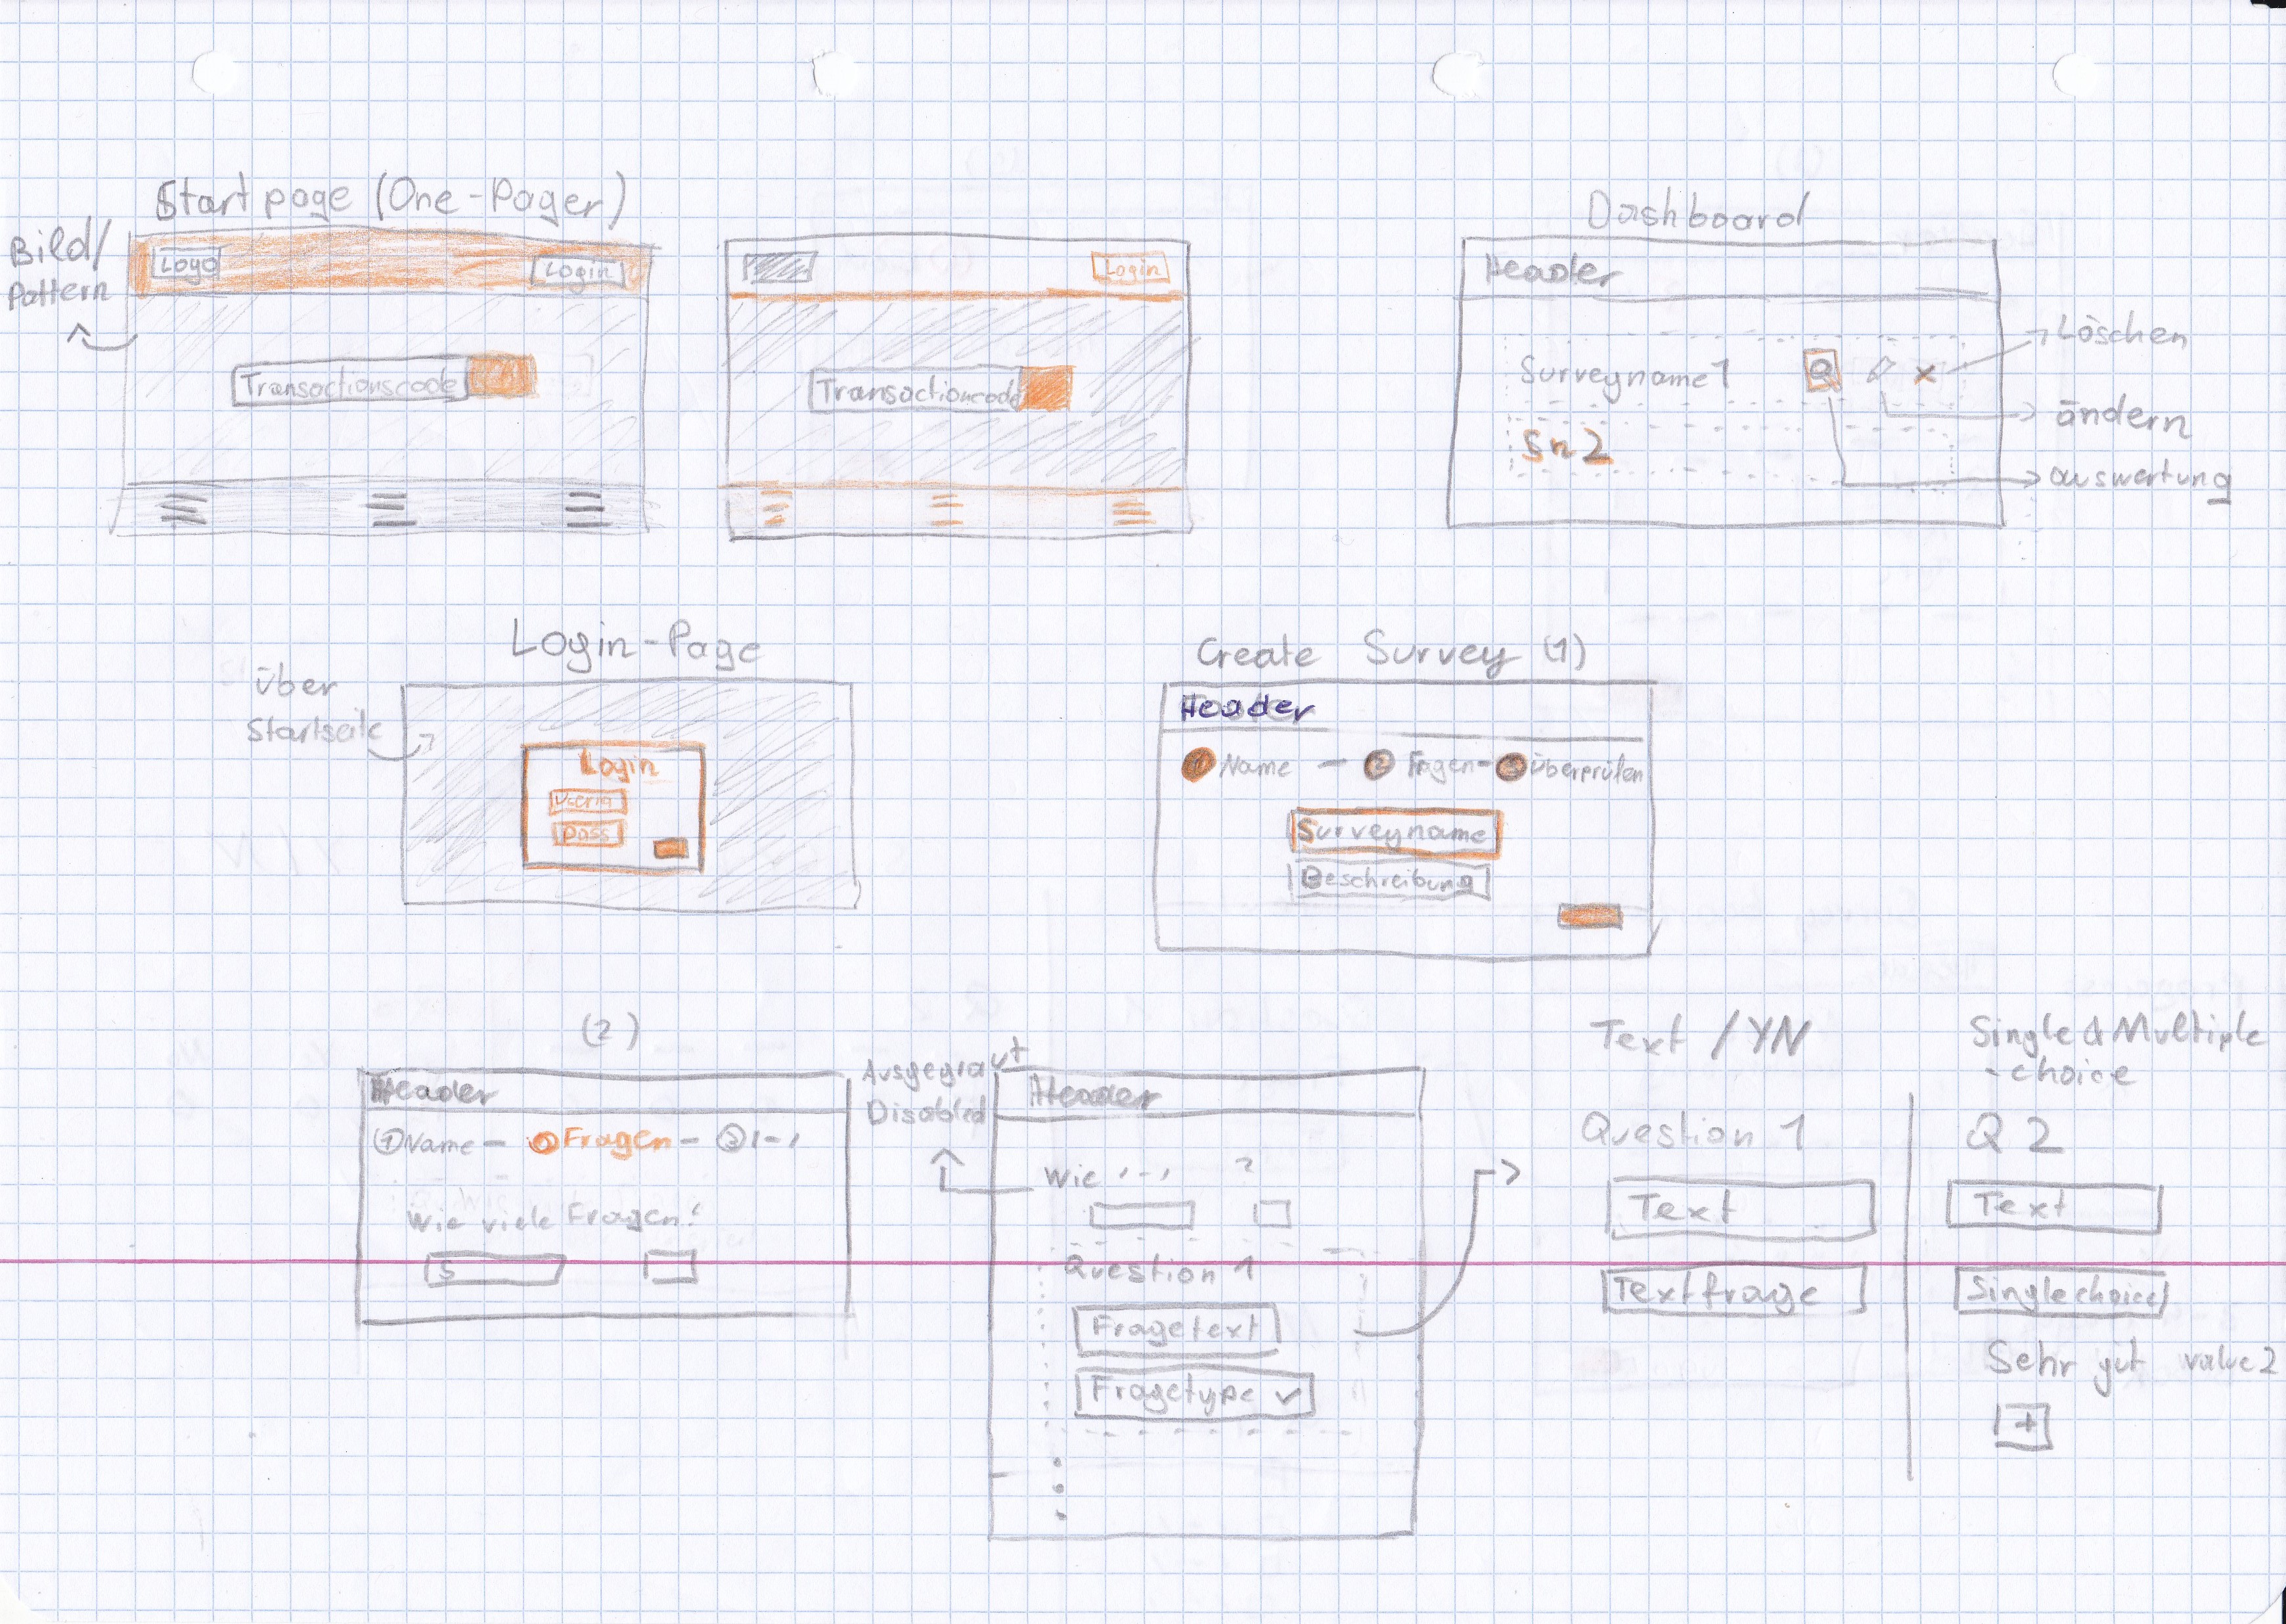 Startpage (One-Pager)
Bild/
Pattern
Logo
Login
Transactionscode
Login
Transactioncode
Dashboard
Header
Surveyname 1
Sn 2
Löschen
ändern
auswertung
Login-Page
über
Startseite
Login
pass
Create Survey (1)
Header
1 Name - 2 Fragen - 3 überprüfen
Surveyname
Beschreibung
(2)
Header
1 Name - 2 Fragen - 3
Wie viele Fragen?
5
Ausgegraut
Disabled
Header
Wie ?
Question 1
Fragetext
Fragetype
Text / YN
Question 1
Text
Textfrage
Single & Multiple
- choice
Q 2
Text
Singlechoice
Sehr gut value 2
+